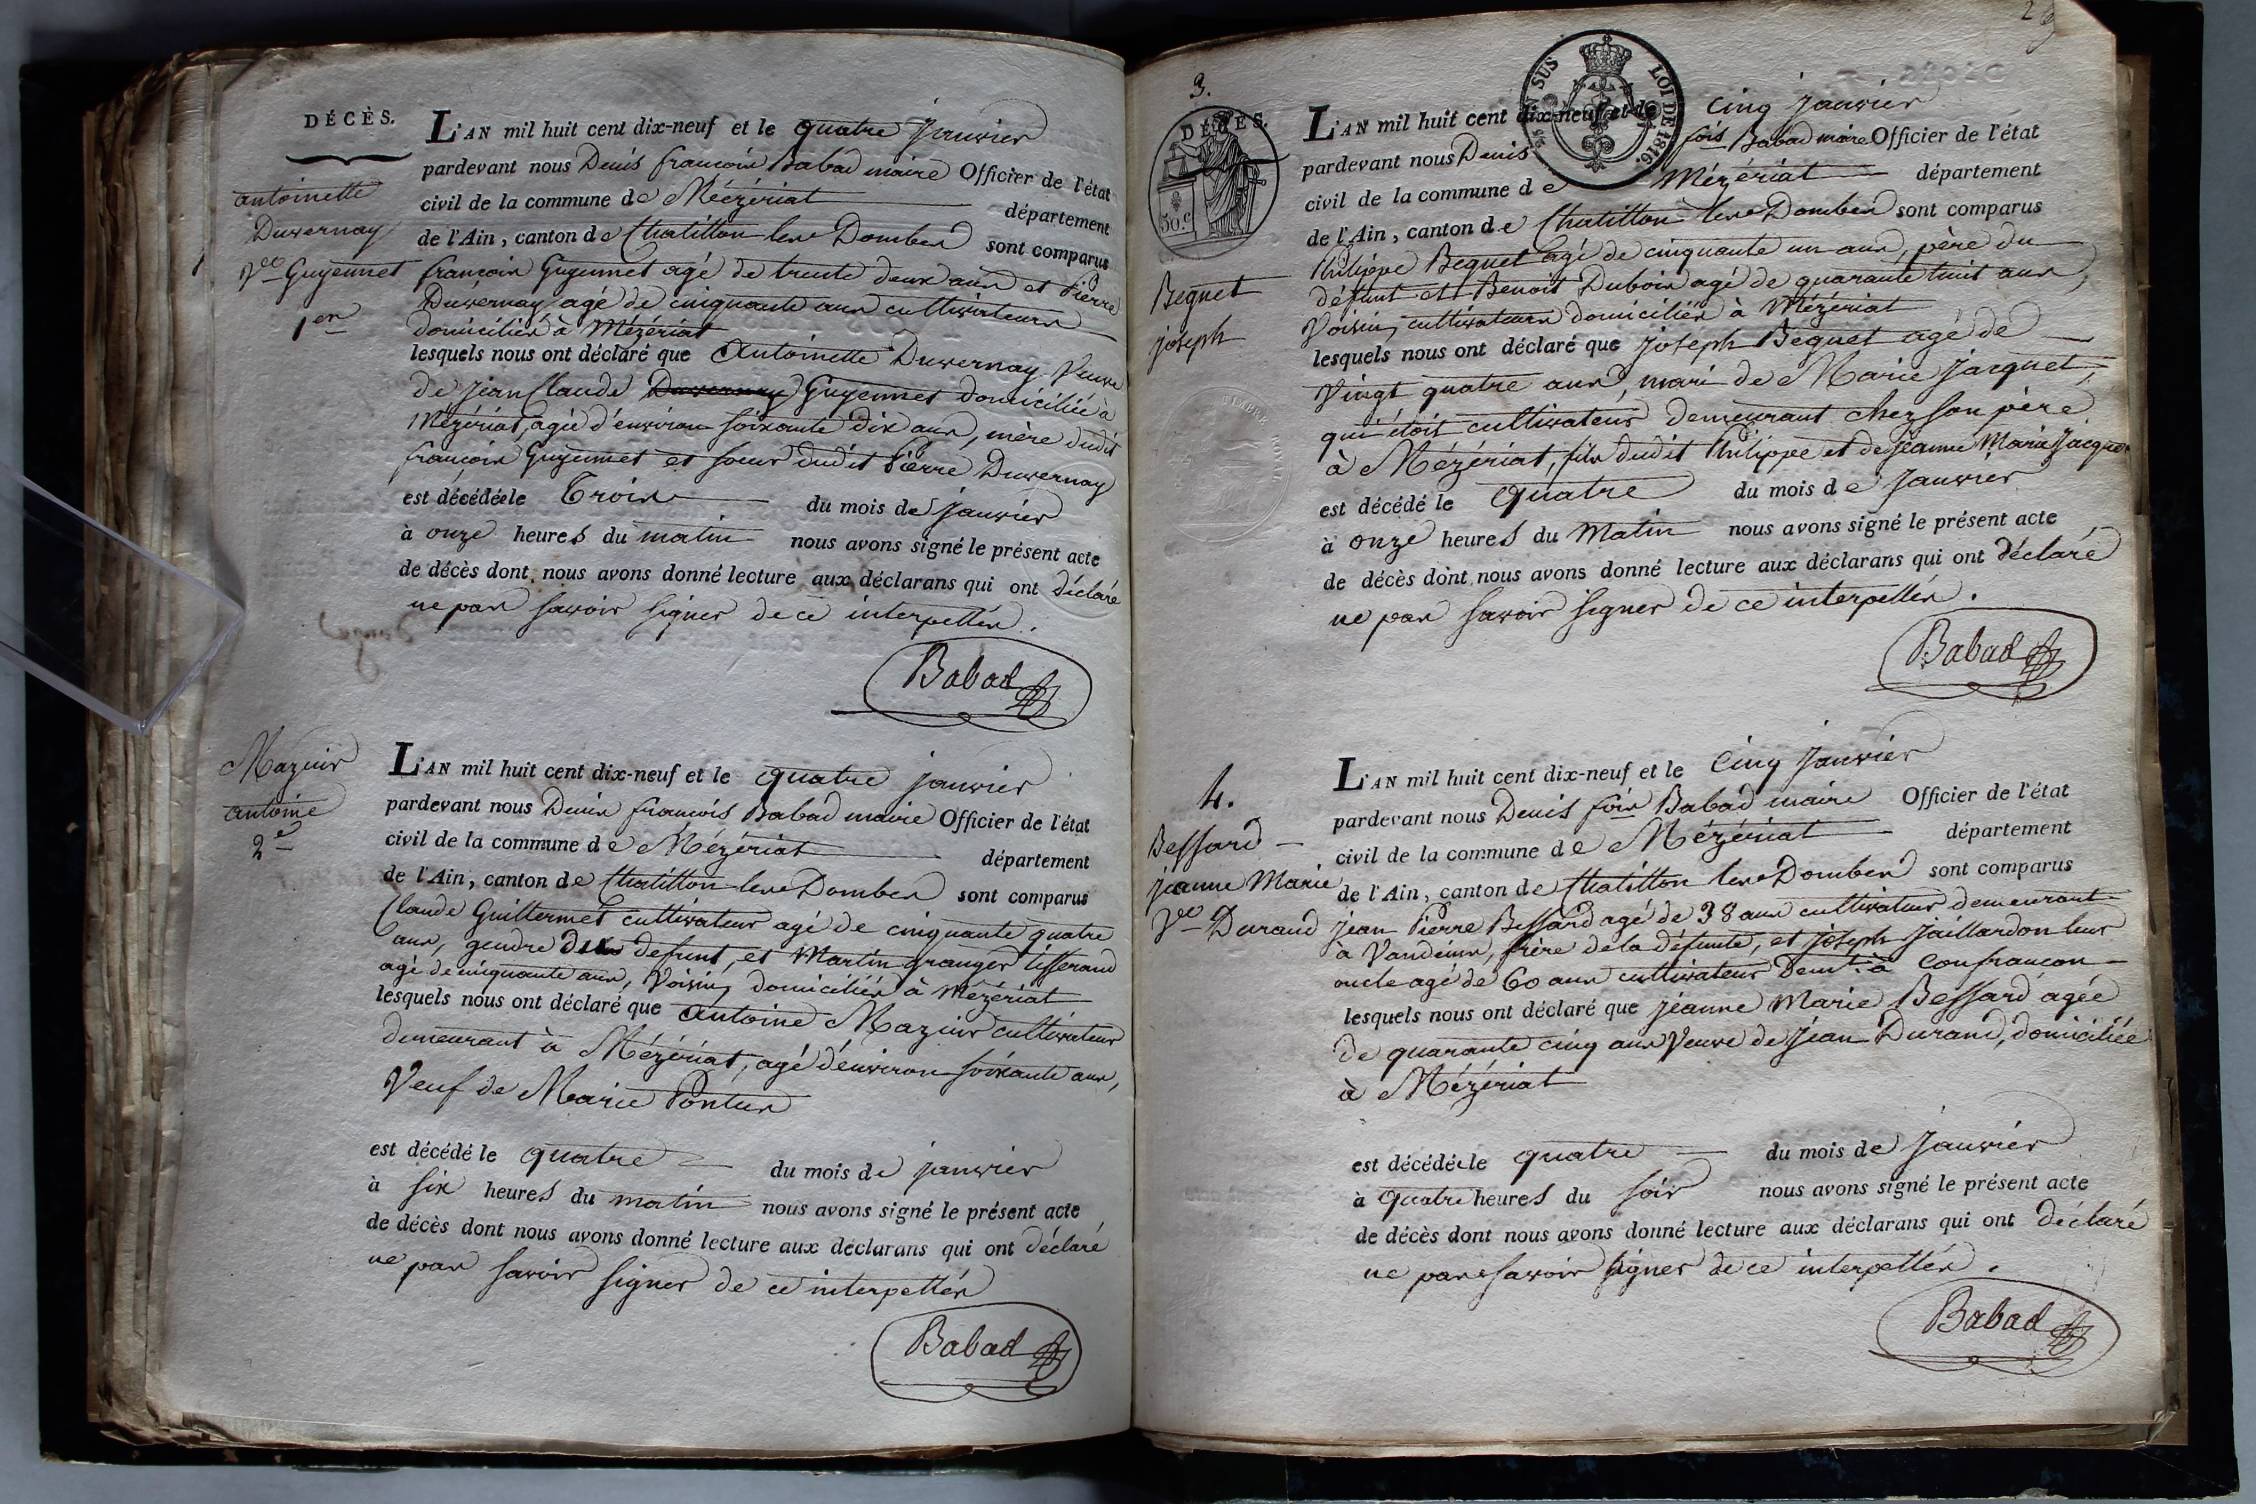 DÉCÈS.
antoinette
Duvernay
Vve Guyennet
1er
L'AN mil huit cent dix-neuf et le quatre janvier
pardevant nous Denis françois Babad maire Officier de l'état
civil de la commune de Mézériat département
de l'Ain, canton de Chatillon les Dombes sont comparus
françois Guyennet agé de trente deux ans et Pierre
Duvernay agé de cinquante ans cultivateurs
domiciliés à Mézériat
lesquels nous ont déclaré que Antoinette Duvernay Veuve
de jean Claude Duvernay Guyennet domiciliée à
Mézériat, agée d'environ soixante dix ans, mère dudit
françois Guyennet et soeur dudit Pierre Duvernay
est décédée le Trois du mois de janvier
à onze heures du matin nous avons signé le présent acte
de décès dont nous avons donné lecture aux déclarans qui ont déclaré
ne pas savoir signer de ce interpellés.
Babad
Mazuir
antoine
2e
L'AN mil huit cent dix-neuf et le quatre janvier
pardevant nous Denis françois Babad maire Officier de l'état
civil de la commune de Mézériat département
de l'Ain, canton de Chatillon les Dombes sont comparus
Claude Guillermet cultivateur agé de cinquante quatre
ans, gendre du defunt, et Martin granger tisserand
agé de cinquante ans, Voisin, domiciliés à Mézériat
lesquels nous ont déclaré que Antoine Mazuir cultivateur
demeurant à Mézériat, agé d'environ soixante ans,
Veuf de Marie Pontus
est décédé le quatre du mois de janvier
à six heures du matin nous avons signé le présent acte
de décès dont nous avons donné lecture aux déclarans qui ont déclaré
ne pas savoir signer de ce interpellés
Babad
3.
DÉCÈS.
50.c
EN SUS LOI DE 1816.
TIMBRE ROYAL
Bequet
joseph
L'AN mil huit cent dix-neuf et le cinq janvier
pardevant nous Denis fois Babad maire Officier de l'état
civil de la commune de Mézériat département
de l'Ain, canton de Chatillon les Dombes sont comparus
Philippe Bequet agé de cinquante un ans, père du
défunt et Benoit Dubois agé de quarante huit ans,
Voisin, cultivateurs domiciliés à Mézériat
lesquels nous ont déclaré que joseph Bequet agé de
Vingt quatre ans, mari de Marie jacquet,
qui étoit cultivateur demeurant chez son père
à Mézériat, fils dudit Philippe et de jeanne Marie
est décédé le quatre du mois de janvier
à onze heures du Matin nous avons signé le présent acte
de décès dont nous avons donné lecture aux déclarans qui ont déclaré
ne pas savoir signer de ce interpellés.
Babad
4.
Bessard
jeanne Marie
Vve Durand
L'AN mil huit cent dix-neuf et le Cinq janvier
pardevant nous Denis fois Babad maire Officier de l'état
civil de la commune de Mézériat département
de l'Ain, canton de Chatillon les Dombes sont comparus
jean Pierre Bessard agé de 38 ans cultivateur demeurant
à Vandeins, frère de la défunte, et joseph jaillardon leur
oncle agé de 60 ans cultivateur demt. à confrançon
lesquels nous ont déclaré que jeanne Marie Bessard agée
de quarante cinq ans Veuve de jean Durand, domiciliée
à Mézériat
est décédée le quatre du mois de janvier
à quatre heures du soir nous avons signé le présent acte
de décès dont nous avons donné lecture aux déclarans qui ont déclaré
ne pas savoir signer de ce interpellés.
Babad